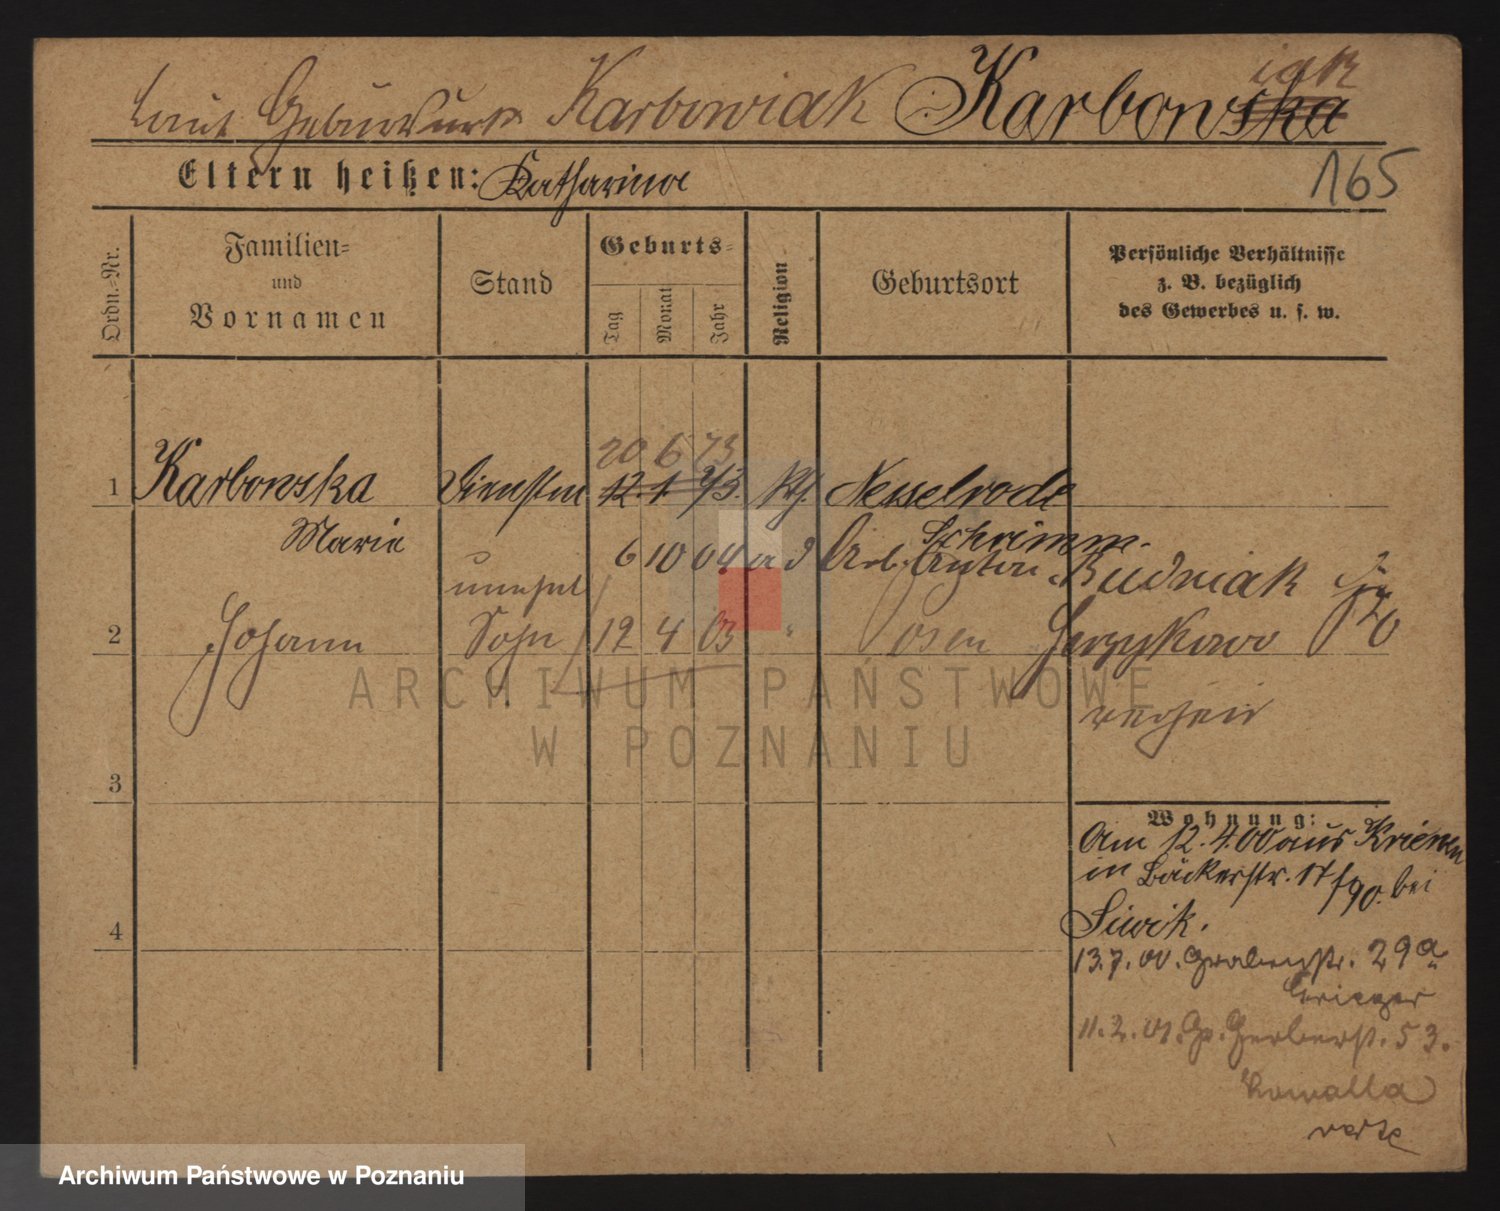 laut Geburtsurk Karbowiak Karbowska iak
Eltern heißen: Katharina
165
Ordn.-Nr.
Familien- und Vornamen
Stand
Geburts-
Tag Monat Jahr
Religion
Geburtsort
Persönliche Verhältnisse
z. B. bezüglich
des Gewerbes u. s. w.
20 6 73
1 Karbowska Dienstm 12. 1. 73. kth Nesselrode
Marie
Schrimm.
6 10 04 Arb. Anton Budniak
unehel
2 Johann Sohn 12 4 03 " Posen Jerzykowo
verheir
3
Wohnung:
Am 12.4.00 aus Kriewen
in Bäckerstr. 17/90. bei
Siwik.
4
13.7.00. Grabenstr. 29a
Krieger
11.2.01. Gr. Gerberst. 53.
Kowalla
verte
ARCHIWUM PAŃSTWOWE
W POZNANIU
Archiwum Państwowe w Poznaniu